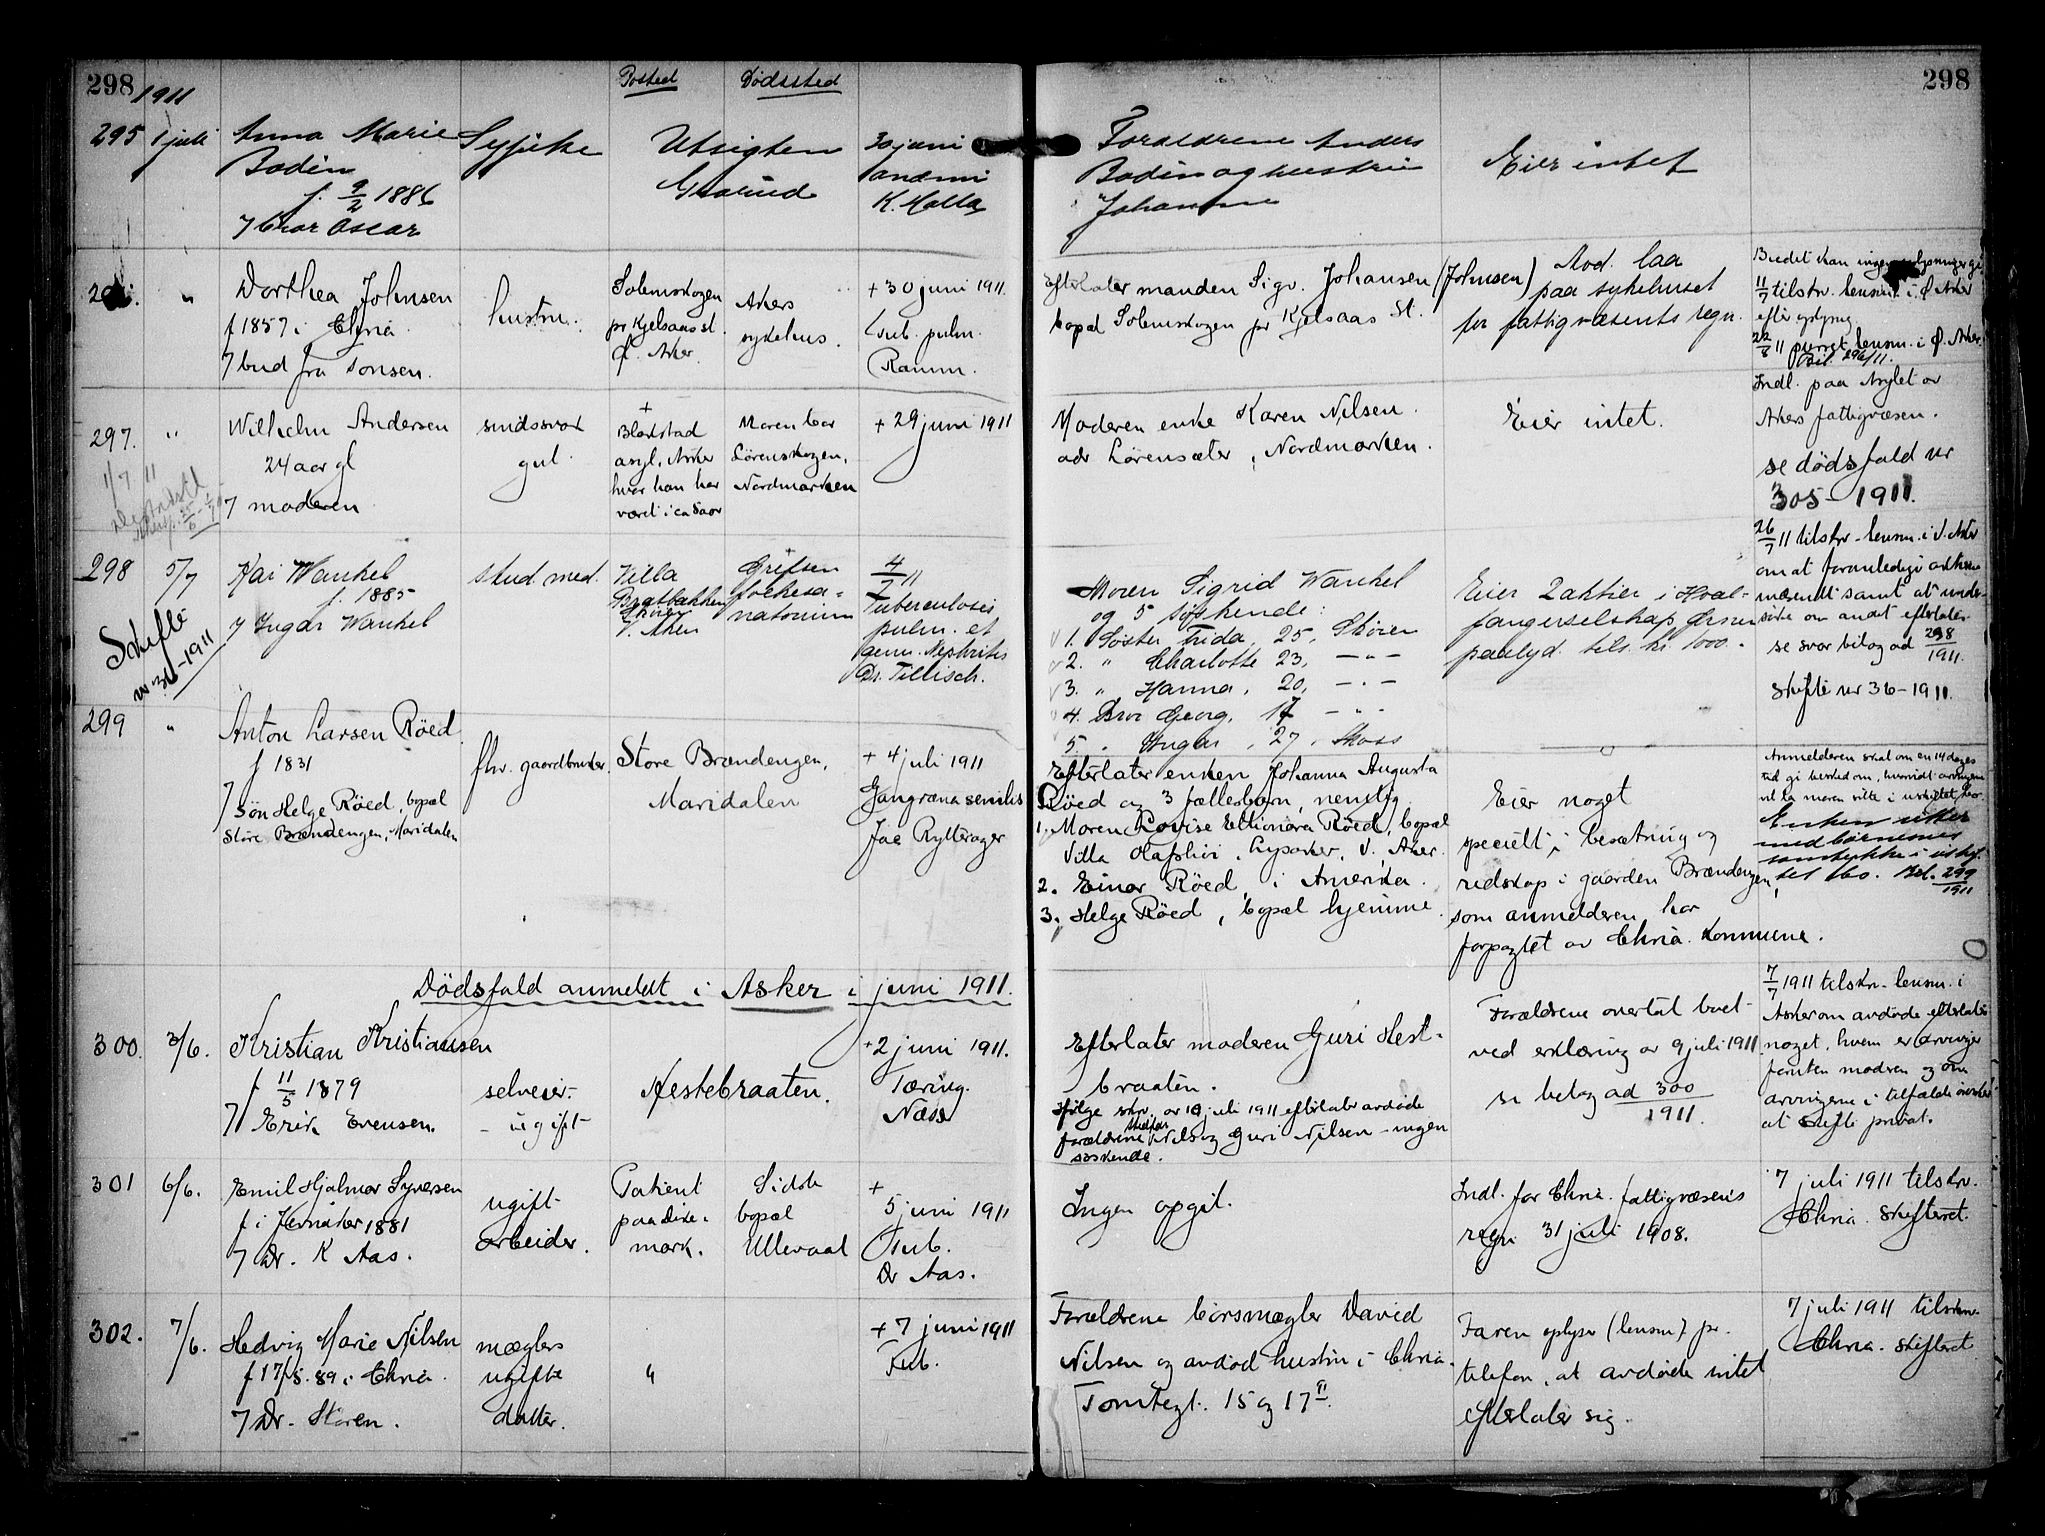 298
1911
Bosted
Dödssted
298
295
1 juli
Anna Marie
Bodin
f. 9/2 1886
7 bror Oscar
Sypike
Utsigten
Grorud
30 juni
anæmi
K. Motta
Forældrene Anders
Bodin og hustru
Johanne
Eier intet
"
Dorthea Johnsen
f 1857 i Chria
7 bud fra Tonsen.
hustru.
Solemskogen
pr Kjelsaas st.
Ø. Aker.
Akers
sykehus.
+ 30 juni 1911.
Tub. pulm.
Ramm.
Efterlater manden Sigv. Johansen (Johnsen)
bopæl Solemskogen pr Kjelsaas St.
Avd. laa
paa sykehuset
for fattigvæsenets regn.
Budet kan ingen oplysninger gi
11/7 tilskr. lensm. i Ø. Aker
efter oplysng
22/8 11 purret lensm. i Ø. Aker.
Bil. 296/11.
297.
"
1/7 11
Wilhelm Andersen
24 aar gl
7 moderen
sindssvak
gut
+
Blakstad
asyl, Asker
hvor han har
været i ca 5 aar
Lørenskogen,
Nordmarken
+ 29 juni 1911
Moderen enke Karen Nilsen.
adr Lørensæter, Nordmarken.
Eier intet.
Indl. paa Asylet av
Akers fattigvæsen.
se dödsfald nr
305 - 1911.
298
5/7
Skifte
nr 36-1911
Kai Wankel
f. 1885
7 Yngar Wankel
stud. med.
Villa
Bratbakken
Skøien
V. Aker
Grefsen
folkesa-
natorium
4/7 11
Tuberculosis
pulm. et
Nephritis
Dr. Tillisch.
Moren Sigrid Wankel
og 5 søskende:
1. Søster Frida, 25, Skøien
2. " Charlotte 23, - " -
3. " Hanna, 20, - " -
4. Bror Georg, 17 - " -
5. " Yngar, 27, Moss
Eier 2 aktier i Hval-
fangerselskap Ørnen
paalyd. tils. kr. 1000.-
26/7 11 tilskr. lensm. i V. Aker
om at foranledige
nævndt samt at under-
søke om andet efterlates
se svar bilag ad 298/1911.
Skifte nr 36-1911.
299
"
Anton Larsen Röed
f 1831
7 Sön Helge Röed, bopæl
Store Brændengen, Maridalen
fhv. gaardbruker.
Store Brændengen,
Maridalen
+ 4 juli 1911
Gangræna senilis
Jac Rytterager
Efterlater enken Johanna Augusta
Röed og 3 fællesbarn, nemlig
1. Maren Lovise Ellionora Röed, bopæl
Villa Olafshöi, Lysaker, V. Aker.
2. Einar Röed, i Amerika.
3. Helge Röed, bopæl hjemme.
Eier noget
specielt i besætning og
redskap i gaarden Brændengen,
som anmelderen har
forpagtet av Chria. Kommune.
Anmelderen skal om en 14 dages
tid gi besked om, hvorvidt arvingene
vil la moren sitte i uskiftet bo.
Enken sitter
med börnenes
samtykke i uskif-
tet bo. Bil. 299/1911
Dödsfald anmeldt i Asker i juni 1911.
300.
3/6.
Kristian Kristiansen
f 11/5 1879
7 Erik Evensen.
selveier-
- ugift -
Hestebraaten.
+ 2 juni 1911.
Tæring.
Næss
Efterlater moderen Guri Hest-
braaten.
Ifölge skr. av 19 juli 1911 efterlater avdöde
forældrene Nils og Guri Nilsen - ingen
söskende.
Forældrene overtat boet
ved erklæring av 9 juli 1911
se bilag ad 300/1911.
7/7 1911 tilskr. lensm. i
Asker om avdöde efterlater
noget, hvem er arvinger
foruten modren og om
arvingerne i tilfælde ønsker
at skifte privat.
301
6/6.
Emil Hjalmar Syversen
f i Jevnaker 1881
7 Dr. K Aas.
ugift
arbeider.
Patient
paa Dike-
mark.
Sidste
bopæl
Ullevaal
+
5 juni 1911
Tub.
Dr Aas.
Ingen opgit.
Indl. for Chria. fattigvæsens
regn 31 juli 1908.
7 juli 1911 tilskr.
Chria. Skifteret.
302.
7/6.
Hedvig Marie Nilsen
f 17/5. 89 i Chria.
7 Dr. Storen.
mæglers
ugifte
datter.
"
+ 7 juni 1911
Tub.
Forældrene börsmægler David
Nilsen og avdöd hustru i Chria.
Tomtegt. 15 og 17
Faren oplyser (lensm) pr.
telefon, at avdøde intet
efterlater sig.
7 juli 1911 tilskr.
Chria. Skifteret